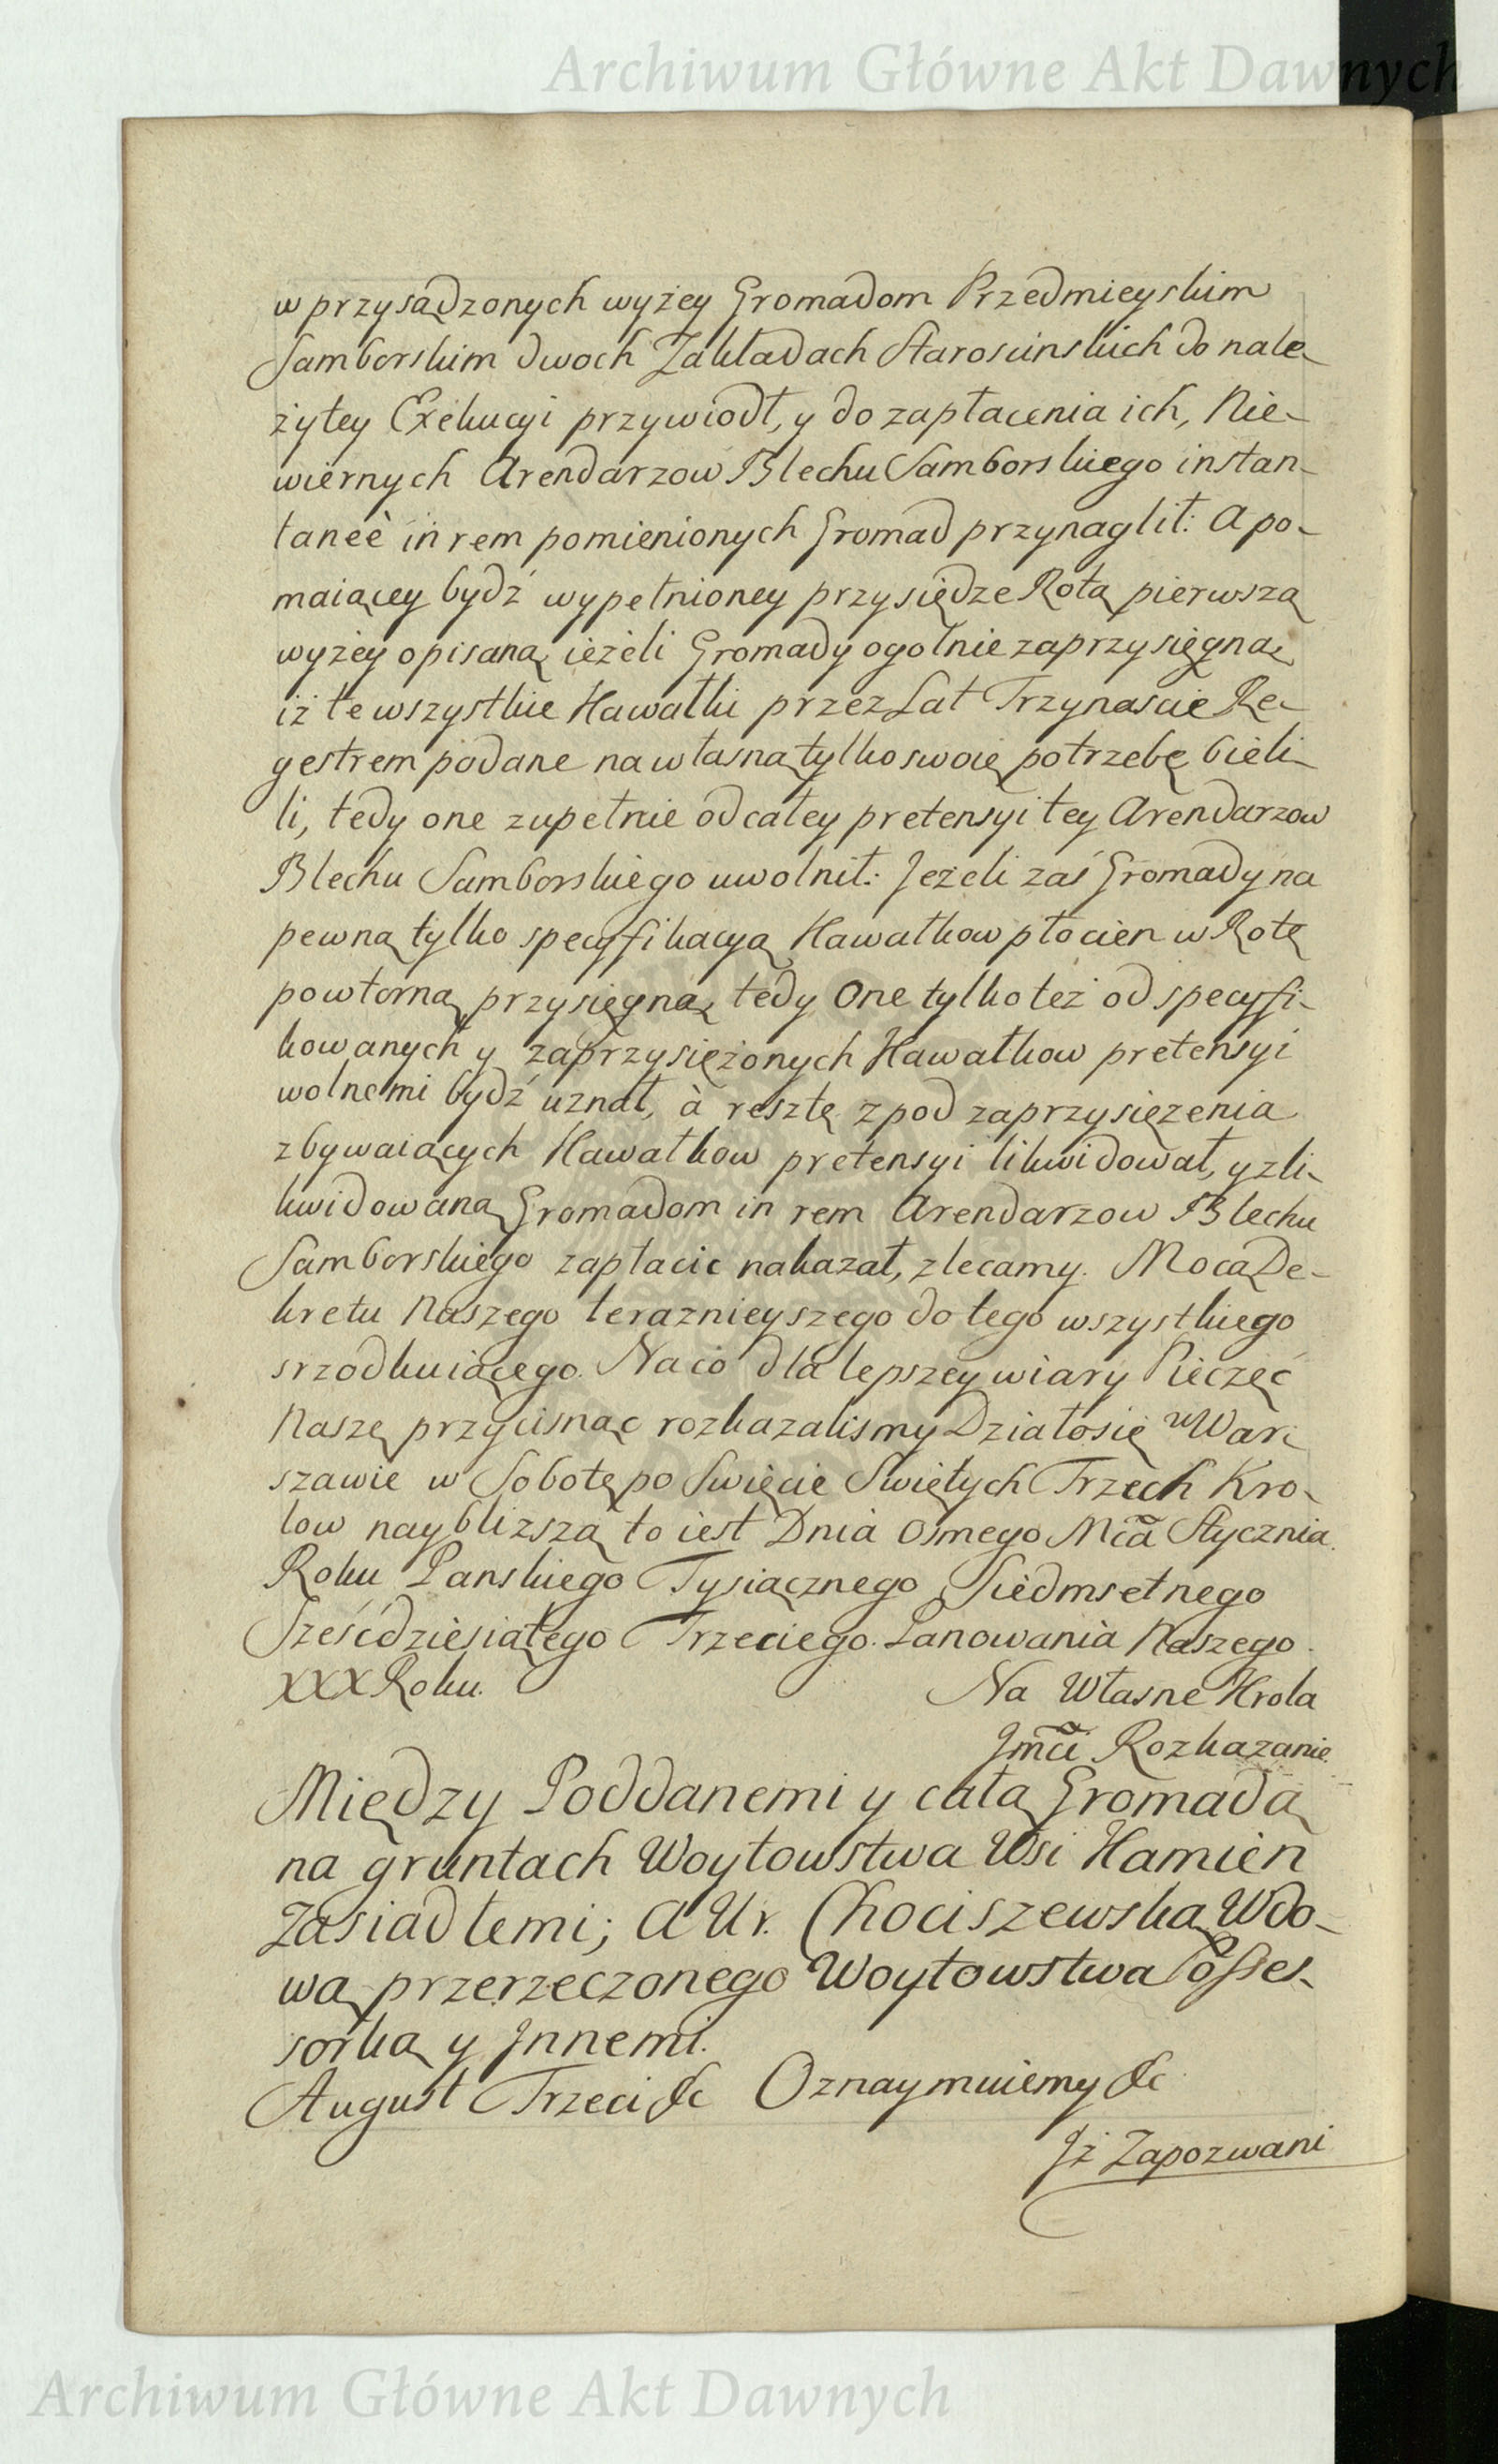 Archiwum Główne Akt Dawnych
w przysądzonych wyżey Gromadom Przedmieyskim
Samborskim dwoch Zakładach Staroscinskich do nale-
żytey Exekucyi przywiodł, y do zapłacenia ich, Nie-
wiernych Arendarzow Blechu Samborskiego instan-
taneè in rem pomienionych Gromad przynaglił: A po-
maiącey bydź wypełnioney przysiędze Rotą pierwszą
wyżey opisaną, ieżeli Gromady ogolnie zaprzysięgną,
iż te wszystkie Kawałki przez Lat Trzynascie Re-
gestrem podane na własną tylko swoię potrzebę bieli-
li, tedy one zupełnie od całey pretensyi tey Arendarzow
Blechu Samborskiego uwolnił: Jeżeli zaś Gromady na
pewną tylko specyfikacyą Kawałkow płocien w Rotę
powtorną przysięgną, tedy One tylko też od specyfi-
kowanych y zaprzysiężonych Kawałkow pretensyi
wolnemi bydź uznał, à resztę z pod zaprzysiężenia
zbywaiących Kawałkow pretensyi likwidował, y zli-
kwidowaną Gromadom in rem Arendarzow Blechu
Samborskiego zapłacic nakazał, zlecamy. Mocą De-
kretu Naszego teraznieyszego do tego wszystkiego
srzodkuiącego. Na co dla lepszey wiary Pieczęć
Naszę przycisnąc rozkazalismy Działo się w War-
szawie w Sobotę po Swięcie Swiętych Trzech Kro-
low naybliższą to iest Dnia osmego Mca Stycznia.
Roku Panskiego Tysiącznego Siedmsetnego
Sześćdziesiątego Trzeciego. Panowania Naszego.
XXX Roku. Na Własne Krola
Jmci Rozkazanie.
Między Poddanemi y całą Gromadą
na gruntach Woytowstwa Wsi Kamien
Zasiadłemi; A Ur. Chociszewską Wdo-
wą przerzeczonego Woytowstwa Posses-
sorką y Jnnemi.
August Trzeci &c Oznaymuiemy &c
Jż Zapozwani
Archiwum Główne Akt Dawnych